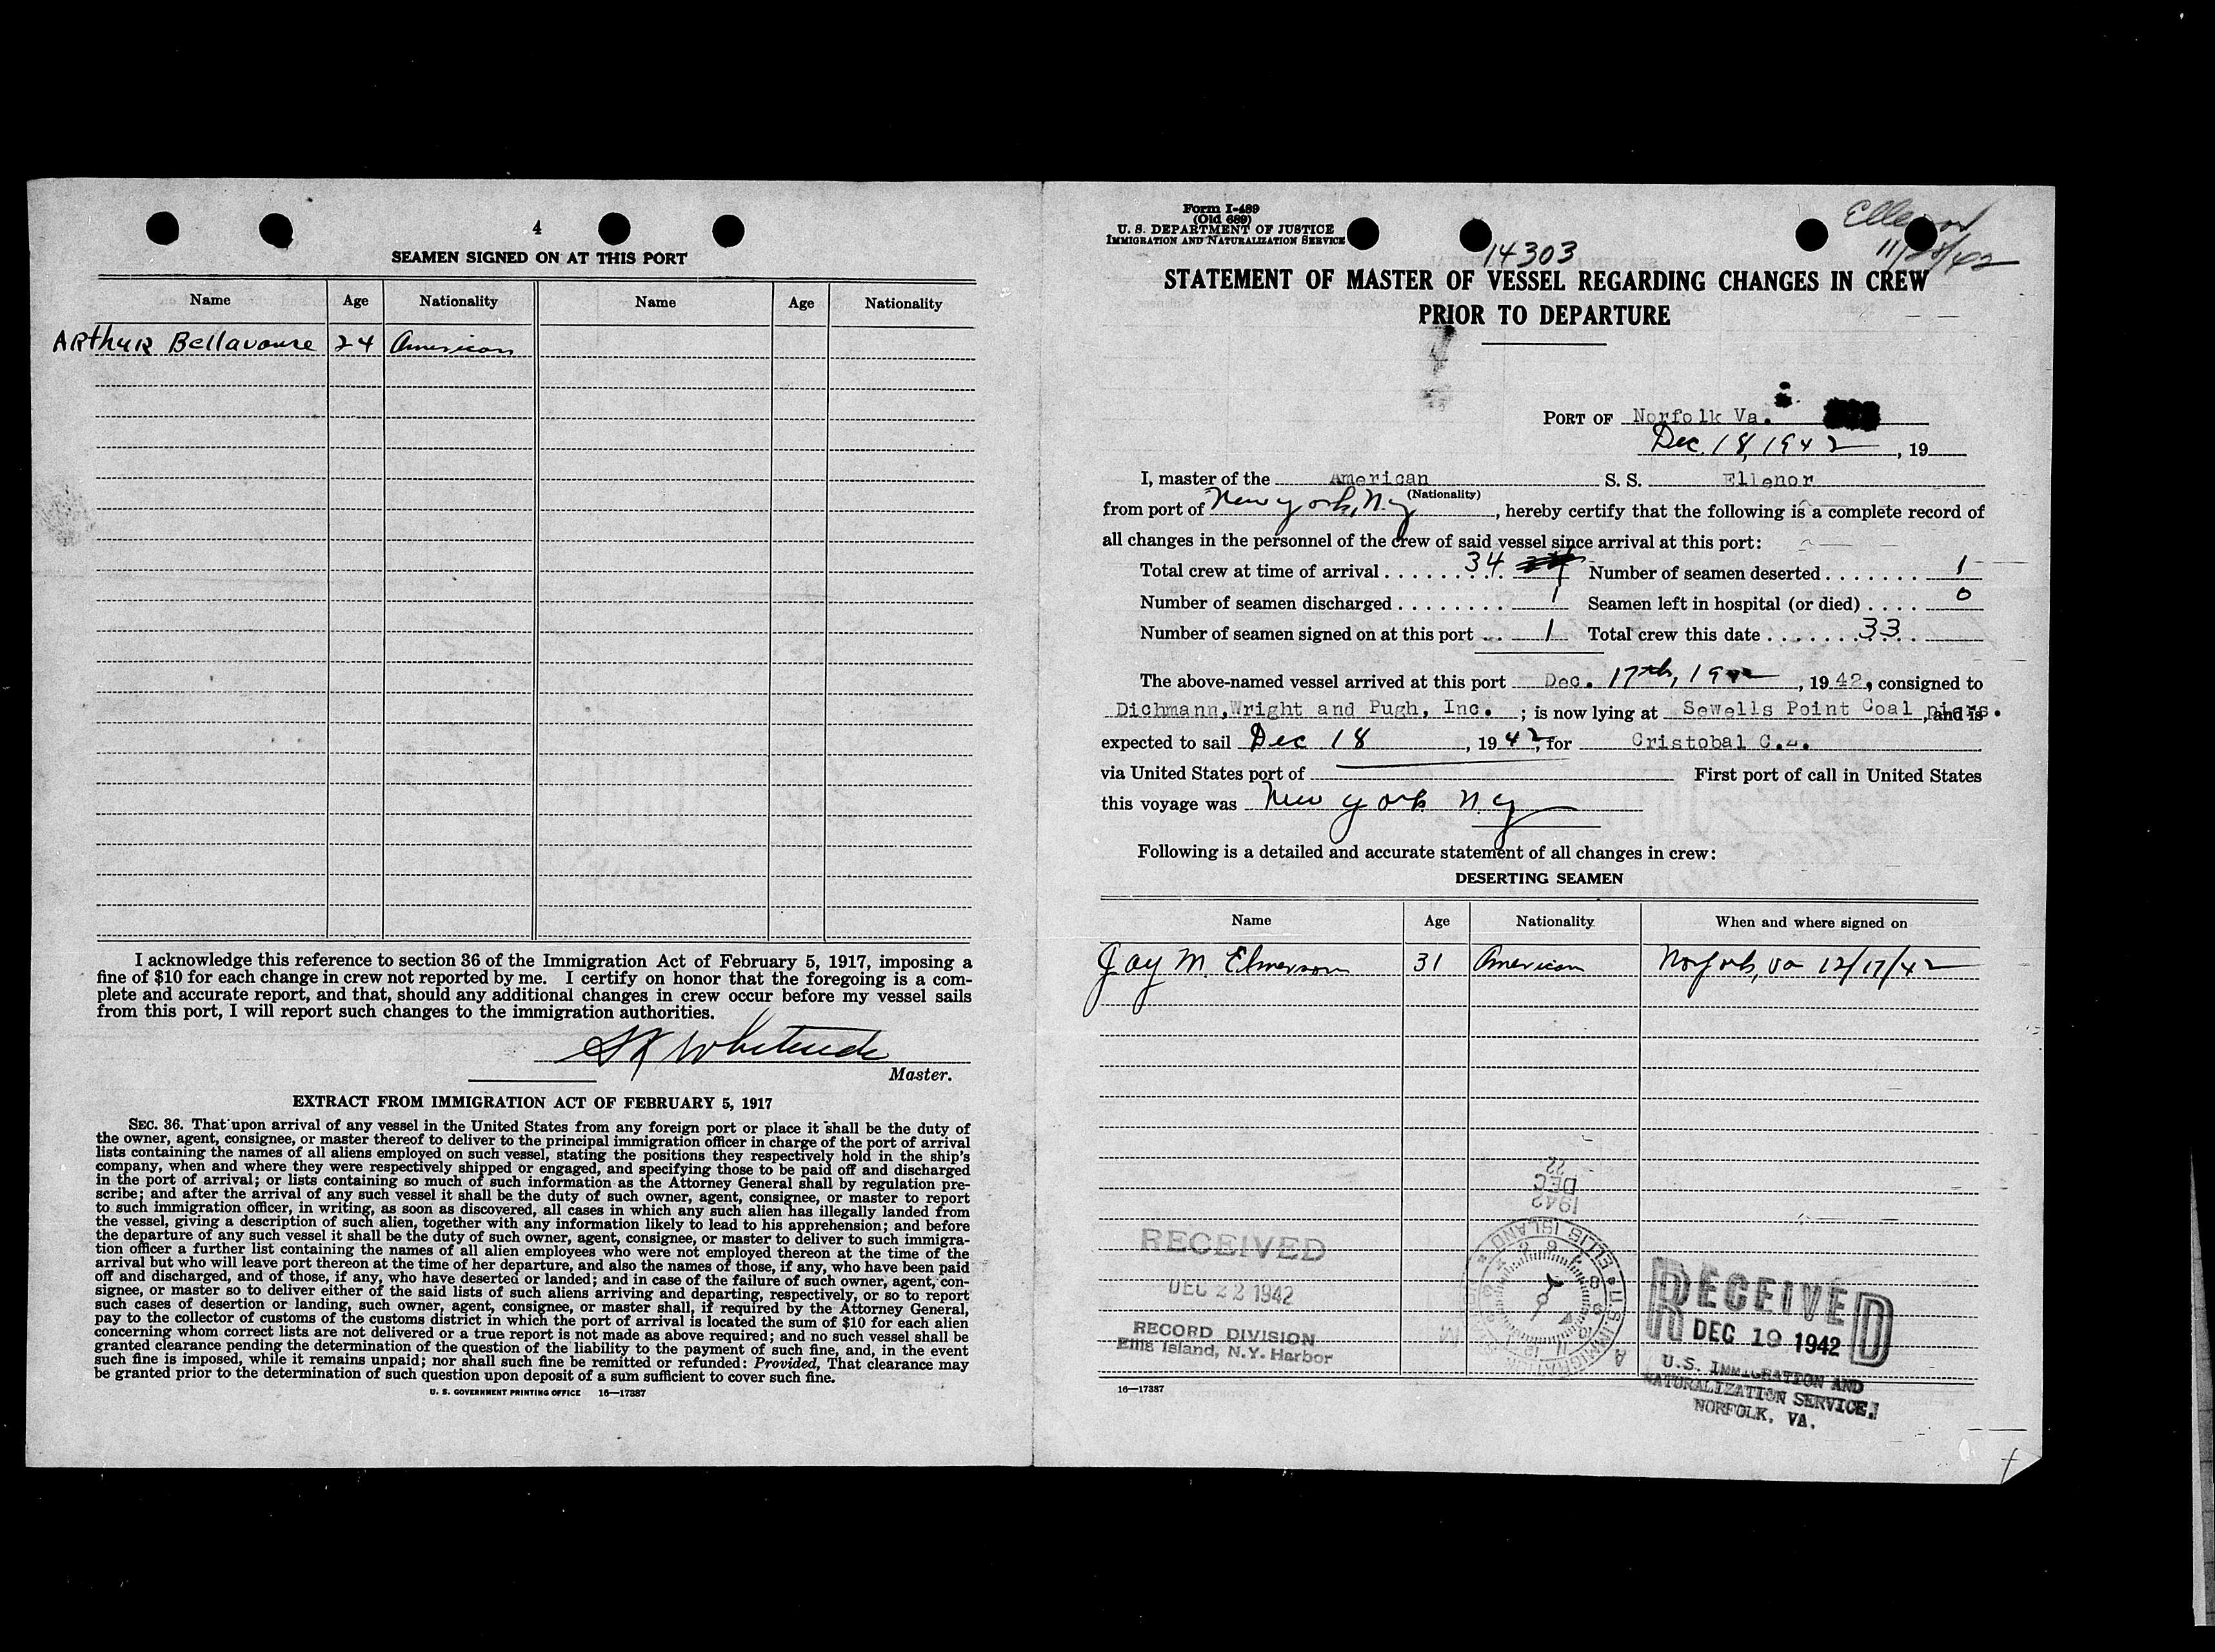 4
SEAMEN SIGNED ON AT THIS PORT
Name Age Nationality Name Age Nationality
ARthuR Bellavance 24 American
I acknowledge this reference to section 36 of the Immigration Act of February 5, 1917, imposing a
fine of $10 for each change in crew not reported by me. I certify on honor that the foregoing is a com-
plete and accurate report, and that, should any additional changes in crew occur before my vessel sails
from this port, I will report such changes to the immigration authorities.
Master.
EXTRACT FROM IMMIGRATION ACT OF FEBRUARY 5, 1917
SEC. 36. That upon arrival of any vessel in the United States from any foreign port or place it shall be the duty of
the owner, agent, consignee, or master thereof to deliver to the principal immigration officer in charge of the port of arrival
lists containing the names of all aliens employed on such vessel, stating the positions they respectively hold in the ship's
company, when and where they were respectively shipped or engaged, and specifying those to be paid off and discharged
in the port of arrival; or lists containing so much of such information as the Attorney General shall by regulation pre-
scribe; and after the arrival of any such vessel it shall be the duty of such owner, agent, consignee, or master to report
to such immigration officer, in writing, as soon as discovered, all cases in which any such alien has illegally landed from
the vessel, giving a description of such alien, together with any information likely to lead to his apprehension; and before
the departure of any such vessel it shall be the duty of such owner, agent, consignee, or master to deliver to such immigra-
tion officer a further list containing the names of all alien employees who were not employed thereon at the time of the
arrival but who will leave port thereon at the time of her departure, and also the names of those, if any, who have been paid
off and discharged, and of those, if any, who have deserted or landed; and in case of the failure of such owner, agent, con-
signee, or master so to deliver either of the said lists of such aliens arriving and departing, respectively, or so to report
such cases of desertion or landing, such owner, agent, consignee, or master shall, if required by the Attorney General,
pay to the collector of customs of the customs district in which the port of arrival is located the sum of $10 for each alien
concerning whom correct lists are not delivered or a true report is not made as above required; and no such vessel shall be
granted clearance pending the determination of the question of the liability to the payment of such fine, and, in the event
such fine is imposed, while it remains unpaid; nor shall such fine be remitted or refunded: Provided, That clearance may
be granted prior to the determination of such question upon deposit of a sum sufficient to cover such fine.
U. S. GOVERNMENT PRINTING OFFICE 16—17387
Form I-489
(Old 689)
U. S. DEPARTMENT OF JUSTICE
IMMIGRATION AND NATURALIZATION SERVICE
Ellenor
11/28/42
14303
STATEMENT OF MASTER OF VESSEL REGARDING CHANGES IN CREW
PRIOR TO DEPARTURE
PORT OF Norfolk Va.
Dec. 18, 1942, 19
I, master of the American S. S. Ellenor
(Nationality)
from port of New York, N.Y, hereby certify that the following is a complete record of
all changes in the personnel of the crew of said vessel since arrival at this port:
Total crew at time of arrival 34 Number of seamen deserted 1
Number of seamen discharged 1 Seamen left in hospital (or died) 0
Number of seamen signed on at this port 1 Total crew this date 33
The above-named vessel arrived at this port Dec. 17th, 1942, 1942, consigned to
Dichmann, Wright and Pugh, Inc. ; is now lying at Sewells Point Coal piers. , and is
expected to sail Dec 18, 1942, for Cristobal C.Z.
via United States port of First port of call in United States
this voyage was New York N.Y
Following is a detailed and accurate statement of all changes in crew:
DESERTING SEAMEN
Name Age Nationality When and where signed on
Jay M. Elmerson 31 American Norfolk, Va 12/17/42
1942
DEC
22
RECEIVED
DEC 22 1942
RECORD DIVISION
Ellis Island, N.Y. Harbor
U.S. IMMIGRATION
ELLIS ISLAND
RECEIVED
DEC 19 1942
U.S. IMMIGRATION AND
NATURALIZATION SERVICE,
NORFOLK, VA.
16—17387